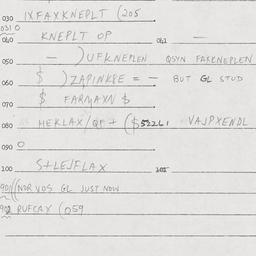 030 IXFAXKNEPLT (205
0310
040 KNEPLT OP 041 —
050 — )UFKNEPLEN QSYN FAXKNEPLEN
060 $ )ZAPINKBE = — BUT GL STUD
070 $ FARMAXN $
080 HEKLAX/QF + ($5226, VAJPXENDL
090
100 S+LEJFLAX 101
901((NOR VOS GL JUST NOW
902 RUFCAX (059